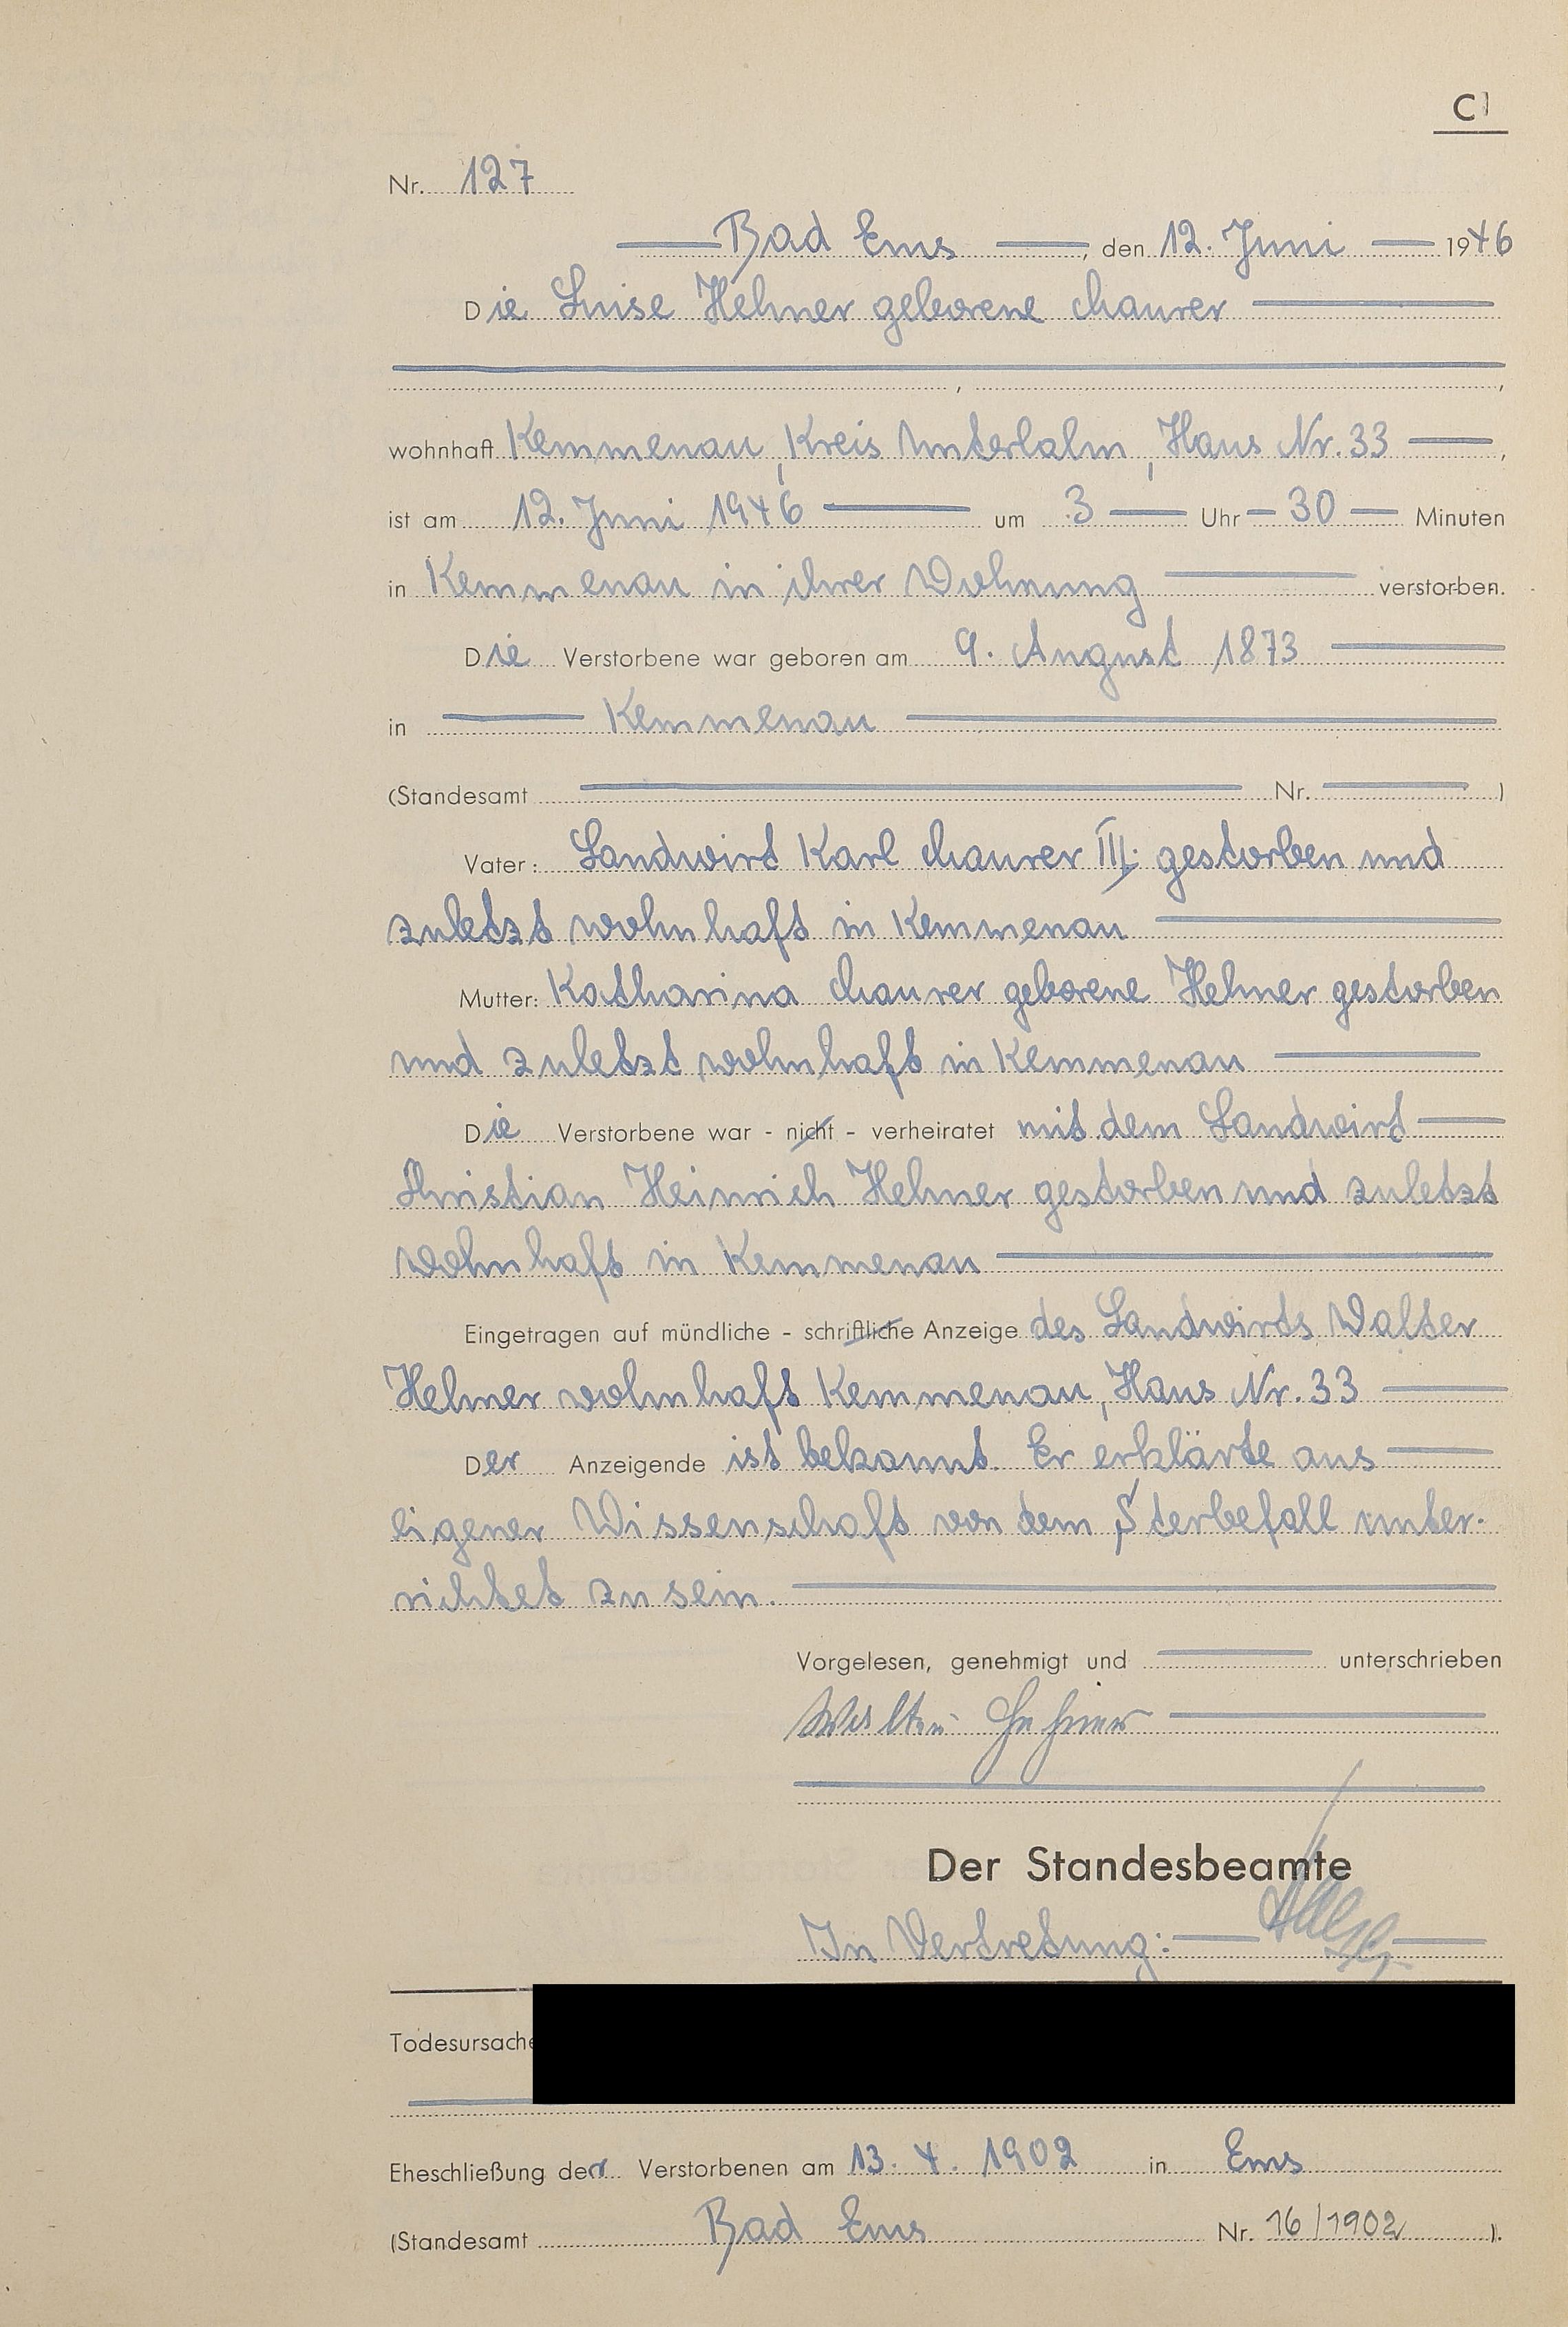 C
Nr. 127
Bad Ems, den 12. Juni 1946
Die Luise Hehner geborene Maurer
wohnhaft Kemmenau, Kreis Unterlahn, Haus Nr. 33,
ist am 12. Juni 1946 um 3 Uhr 30 Minuten
in Kemmenau in ihrer Wohnung verstorben.
Die Verstorbene war geboren am 9. August 1873
in Kemmenau
(Standesamt Nr. )
Vater: Landwirt Karl Maurer III. gestorben und
zuletzt wohnhaft in Kemmenau
Mutter: Katharina Maurer geborene Hehner gestorben
und zuletzt wohnhaft in Kemmenau
Die Verstorbene war - nicht - verheiratet mit dem Landwirt
Christian Heinrich Hehner gestorben und zuletzt
wohnhaft in Kemmenau
Eingetragen auf mündliche - schriftliche Anzeige des Landwirts Walter
Hehner wohnhaft Kemmenau, Haus Nr. 33
Der Anzeigende ist bekannt. Er erklärte aus
eigener Wissenschaft von dem Sterbefall unter-
richtet zu sein.
Vorgelesen, genehmigt und unterschrieben
Walter Hehner
Der Standesbeamte
In Vertretung:
Todesursache
Eheschließung der Verstorbenen am 13. 4. 1902 in Ems
(Standesamt Bad Ems Nr. 16/1902).